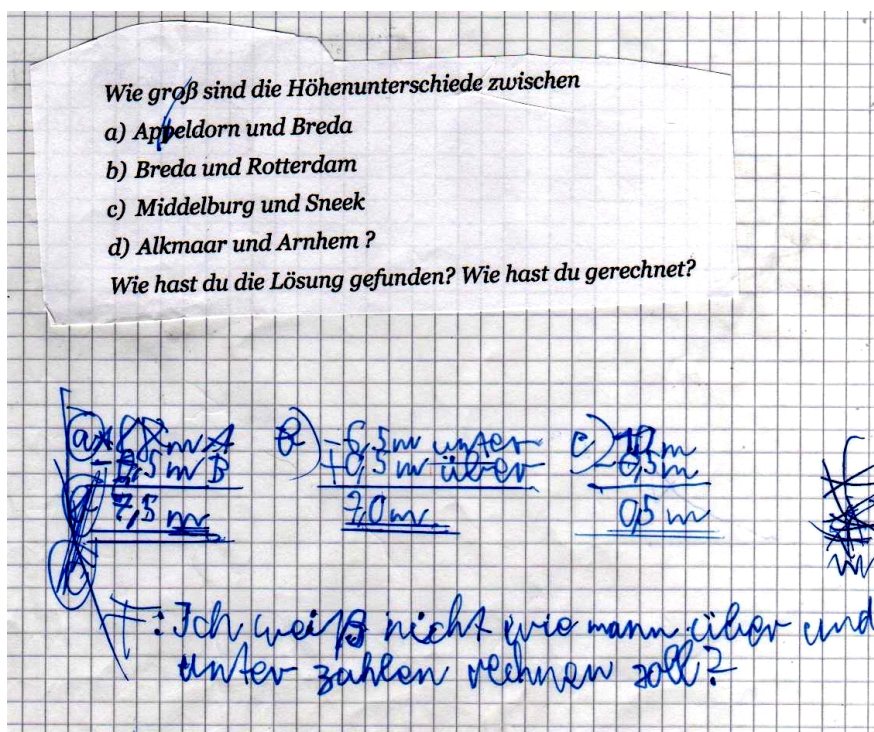 Wie groß sind die Höhenunterschiede zwischen
a) Appeldorn und Breda
b) Breda und Rotterdam
c) Middelburg und Sneek
d) Alkmaar und Arnhem ?
Wie hast du die Lösung gefunden? Wie hast du gerechnet?
a) m A b) -6,5m unter c) m
,5m B +0,5m über -0,5m
7,5 m 7,0m 0,5 m
f: Ich weiß nicht wie mann über und
unter zahlen rechnen soll?